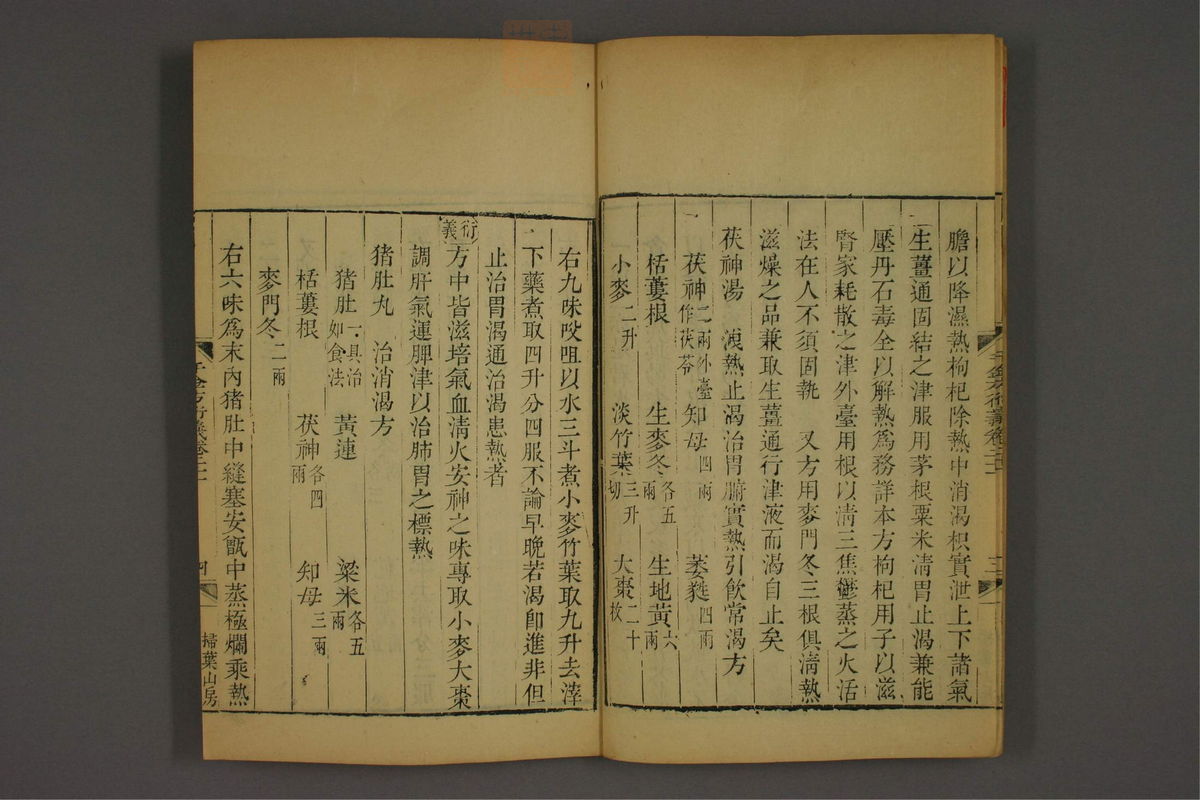 膽以降濕熱枸杞除熱中消渴枳實泄上下諸氣
生薑通固結之津服用茅根粟米淸胃止渴兼能
壓丹石毒全以解熱爲務詳本方枸杞用子以滋
腎家耗散之津外臺用根以淸三焦鬱蒸之火活
法在人不須固執　又方用麥門冬三根俱淸熱
滋燥之品兼取生薑通行津液而渴自止矣
茯神湯　洩熱止渴治胃腑實熱引飮常渴方
茯神二兩外臺作茯苓　知母四兩　萎蕤四兩
栝蔞根　生麥冬各五兩　生地黃六兩
小麥二升　淡竹葉三升切　大棗二十枚
右九味㕮咀以水三斗煮小麥竹葉取九升去滓
下藥煮取四升分四服不論早晚若渴卽進非但
止治胃渴通治渴患熱者
衍義　方中皆滋培氣血淸火安神之味專取小麥大棗
調肝氣運脾津以治肺胃之標熱
猪肚丸　治消渴方
猪肚一具治如食法　黃連　粱米各五兩
栝蔞根　茯神各四兩　知母三兩
麥門冬二兩
右六味爲末內猪肚中縫塞安甑中蒸極爛乘熱
千金方衍義卷二十一
四
掃葉山房